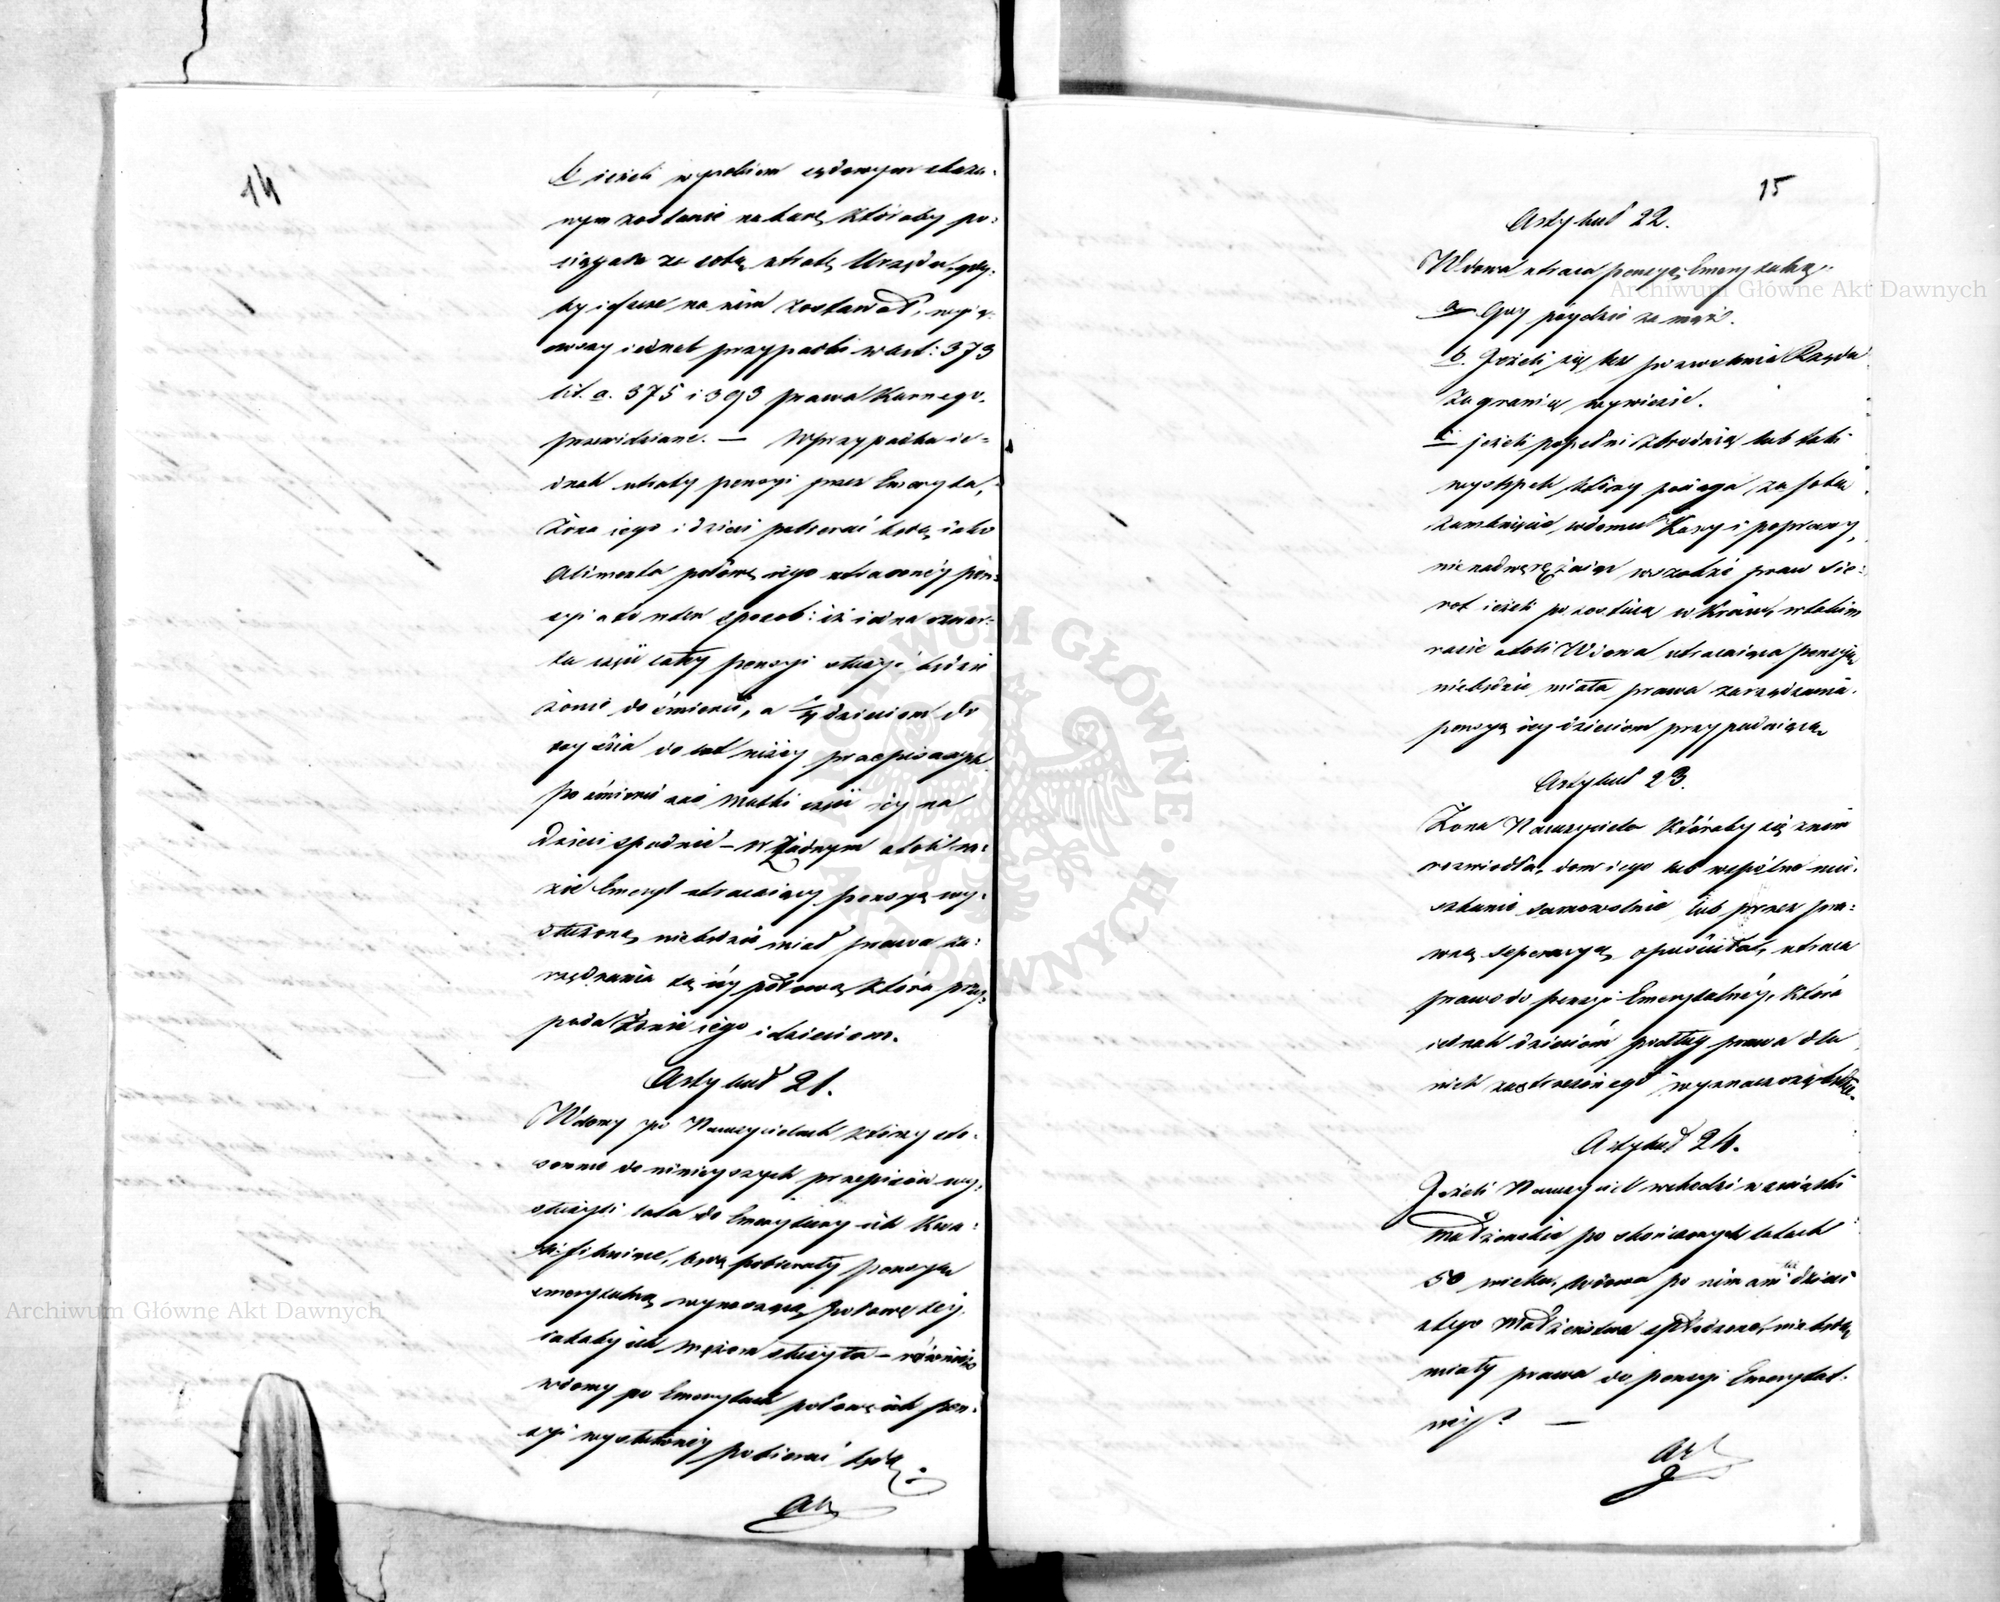 14
b ieżeli wyrokiem sądowym skaza-
nym zostanie na karę któraby po-
ciągała za sobą utratę Urzędu, gdy-
by ieszcze na nim zostawał, wyią-
wszy iednak przypadki w art: 373
lit. a. 375 i 393 prawa Karnego
przewidziane. — W przypadku ie-
dnak utraty pensyi przez Emeryta,
Żona iego i dzieci pobierać będą iako
Alimenta połowę iego utraconéy pen-
syi a to w ten sposób: iż iedna czwar-
ta część całéy pensyi służyć będzie
żonie do śmierci, a 1/4 dzieciom do
doyścia do lat niżéy przepisanych
po śmierci zaś Matki część iéy na
Dzieci spadnie — W Żadnym atoli ra-
zie Emeryt utracaiący pensyą wy-
służoną niebędzie miał prawa za-
rządzania tą iéy połową która przy-
pada Żonie iego i dzieciom.
Artykuł 21.
Wdowy po Nauczycielach którzy sto-
sownie do ninieyszych przepisów wy-
służyli lata do Emerytury ich Kwa-
lifikuiące, będą pobierały pensyą
emerytalną wynoszącą połowę téy
iakaby ich mężom służyła — również
wdowy po Emerytach połowę ich pen-
syi wysłużonéy pobierać będą.
15
Artykuł 22.
Wdowa utraca pensyą Emerytalną:
a. Gdy póydzie za mąż.
b. Jeżeli się bez pozwolenia Rządu
za granicę wyniesie.
c. jeżeli popełni zbrodnię lub taki
występek który pociąga za sobą
zamknięcie w domu Kary i poprawy,
nienadweręzaiąc wszakże praw Sie-
rot ieżeli pozostaią w Kraiu, w takim
razie atoli Wdowa utracaiąca pensyą
niebędzie miała prawa zarządzania
pensyą iéy dzieciom przypadaiącą
Artykuł 23.
Żona Nauczyciela któraby się z nim
rozwiodła, dom iego lub wspólne mie-
szkanie samowolnie lub przez pra-
wną seperacyą opuściła, utraca
prawo do pensyi Emerytalnéy, która
iednak dzieciom podług prawa dla
nich zastrzeżonego wyznaczoną będzie.
Artykuł 24.
Jeżeli Nauczyciel wchodzi w związki
Małżeńskie po skończonych latach
50 wieku, wdowa po nim ani też dzieci
z tego Małżeństwa spłodzone, nie będą
miały prawa do pensyi Emerytal-
néy. —
Archiwum Główne Akt Dawnych
Archiwum Główne Akt Dawnych
ARCHIWUM GŁÓWNE AKT DAWNYCH